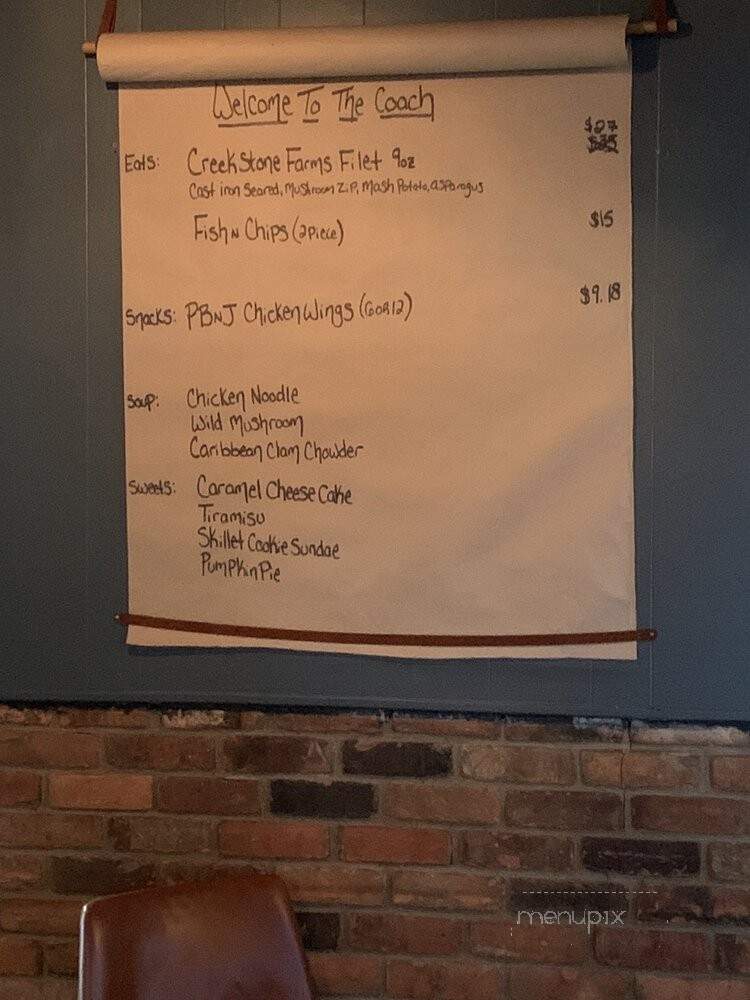 Welcome To The Coach
$27
Eats: Creekstone Farms Filet 9oz
Cast iron Seared, Mushroom Zip, Mash Potato, asparagus
Fish N Chips (2piece) $15
Snacks: PBNJ Chicken Wings (6OR12) $9.18
Soup: Chicken Noodle
Wild Mushroom
Caribbean Clam Chowder
Sweets: Caramel Cheese Cake
Tiramisu
Skillet Cookie Sundae
Pumpkin Pie
menupix